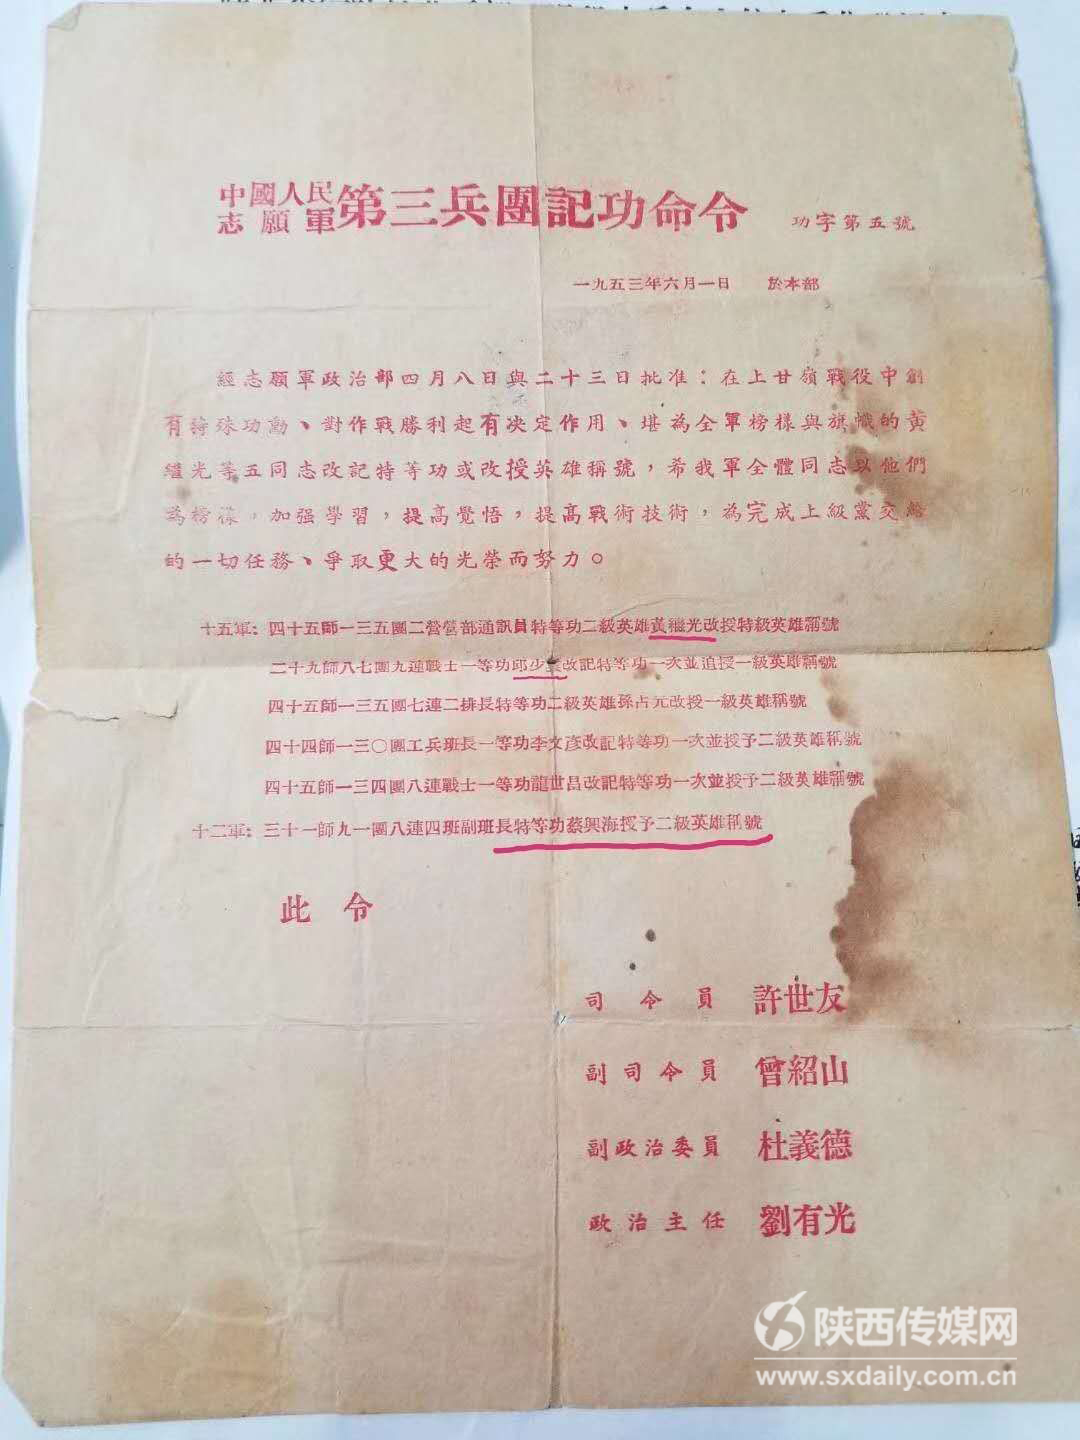 中國人民志願軍 第三兵團記功命令 功字第五號
一九五三年六月一日 於本部
經志願軍政治部四月八日與二十三日批准：在上甘嶺戰役中創
有特殊功勳、對作戰勝利起有决定作用、堪為全軍榜樣與旗幟的黄
繼光等五同志改記特等功或改授英雄稱號，希我軍全體同志以他們
為榜樣，加强學習，提高覺悟，提高戰術技術，為完成上級黨交給
的一切任務、爭取更大的光榮而努力。
十五軍：四十五師一三五團二營營部通訊員特等功二級英雄黃繼光改授特級英雄稱號
二十九師八七團九連戰士一等功邱少雲改記特等功一次並追授一級英雄稱號
四十五師一三五團七連二排長特等功二級英雄孫占元改授一級英雄稱號
四十四師一三〇團工兵班長一等功李文彦改記特等功一次並授予二級英雄稱號
四十五師一三四團八連戰士一等功龍世昌改記特等功一次並授予二級英雄稱號
十二軍：三十一師九一團八連四班副班長特等功蔡興海授予二級英雄稱號
此令
司令員 許世友
副司令員 曾紹山
副政治委員 杜義德
政治主任 劉有光
陕西传媒网
www.sxdaily.com.cn